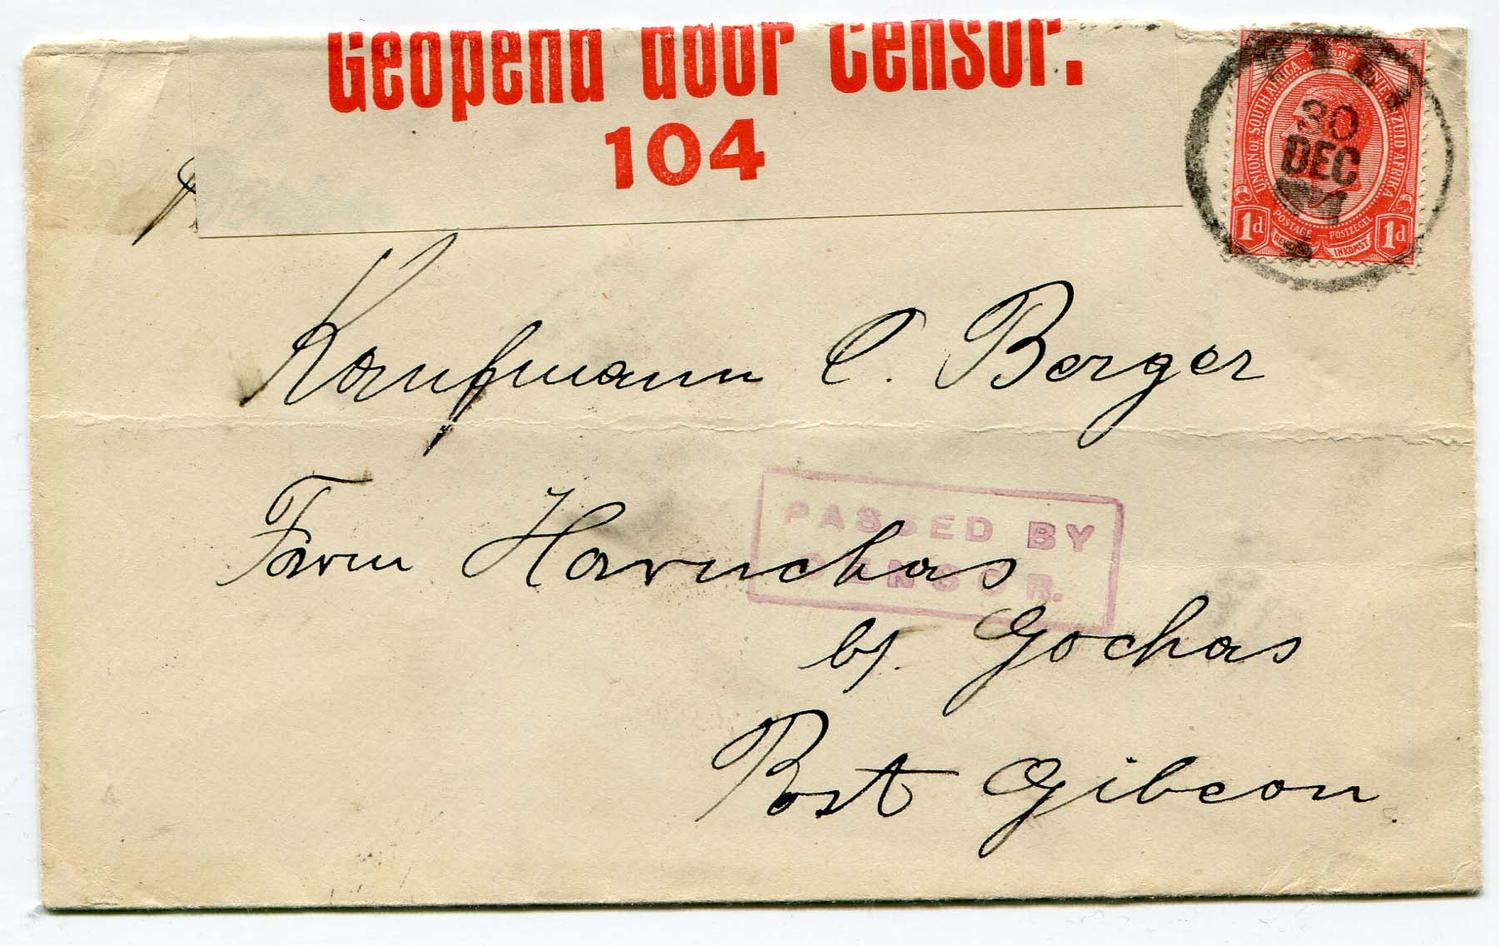 Geopend door Censor.
104
UNION OF SOUTH AFRICA
ZUID AFRIKA
30
DEC
POSTAGE POSTZEGEL
INKOMST
1d 1d
Kaufmann C. Berger
PASSED BY
CENSOR.
Farm Haruchas
by. Gochas
Post Gibeon.